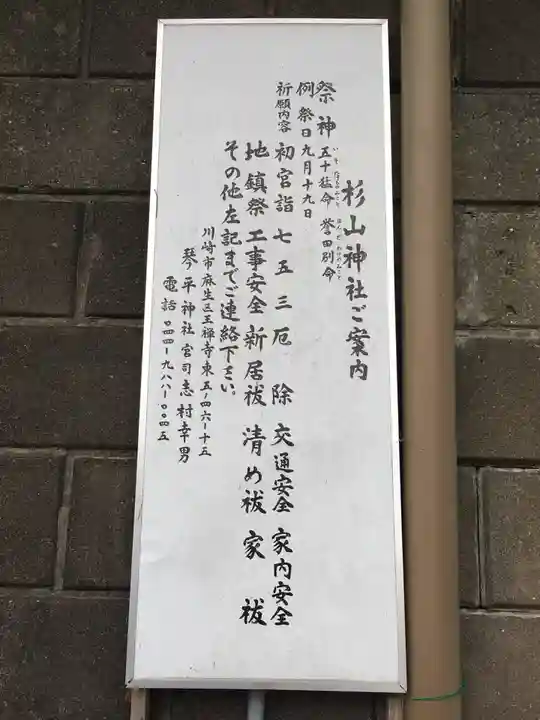 杉山神社ご案内
祭神 五十猛命 誉田別命
いそたけるのみこと ほんだわけのみこと
例祭日 九月十九日
祈願内容 初宮詣 七五三 厄除 交通安全 家内安全
地鎮祭 工事安全 新居祓 清め祓 家祓
その他左記までご連絡下さい。
川崎市麻生区王禅寺東五ー四六ー十五
琴平神社 宮司 志村幸男
電話 〇四四ー九八八ー〇〇四五